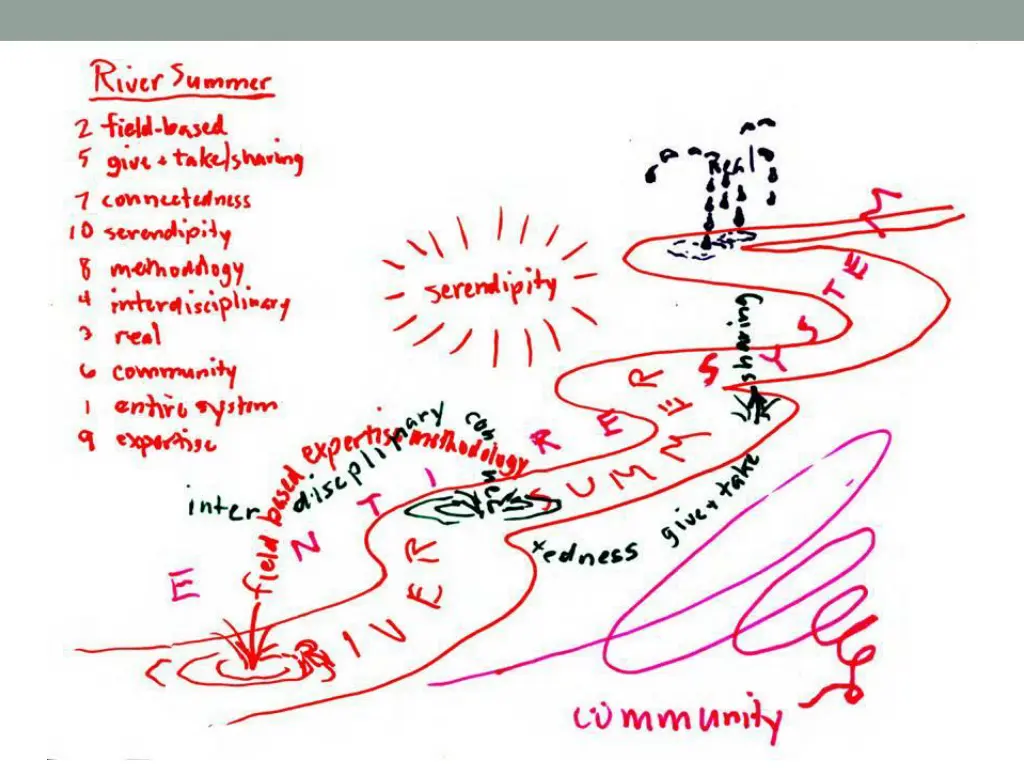 River Summer
2 field-based
5 give + take/sharing
7 connectedness
10 serendipity
8 methodology
4 interdisciplinary
3 real
6 community
1 entire system
9 expertise
Real
serendipity
ENTIRE SYSTEM
RIVER SUMMER
field based expertise methodology
interdisciplinary connectedness give + take sharing
community